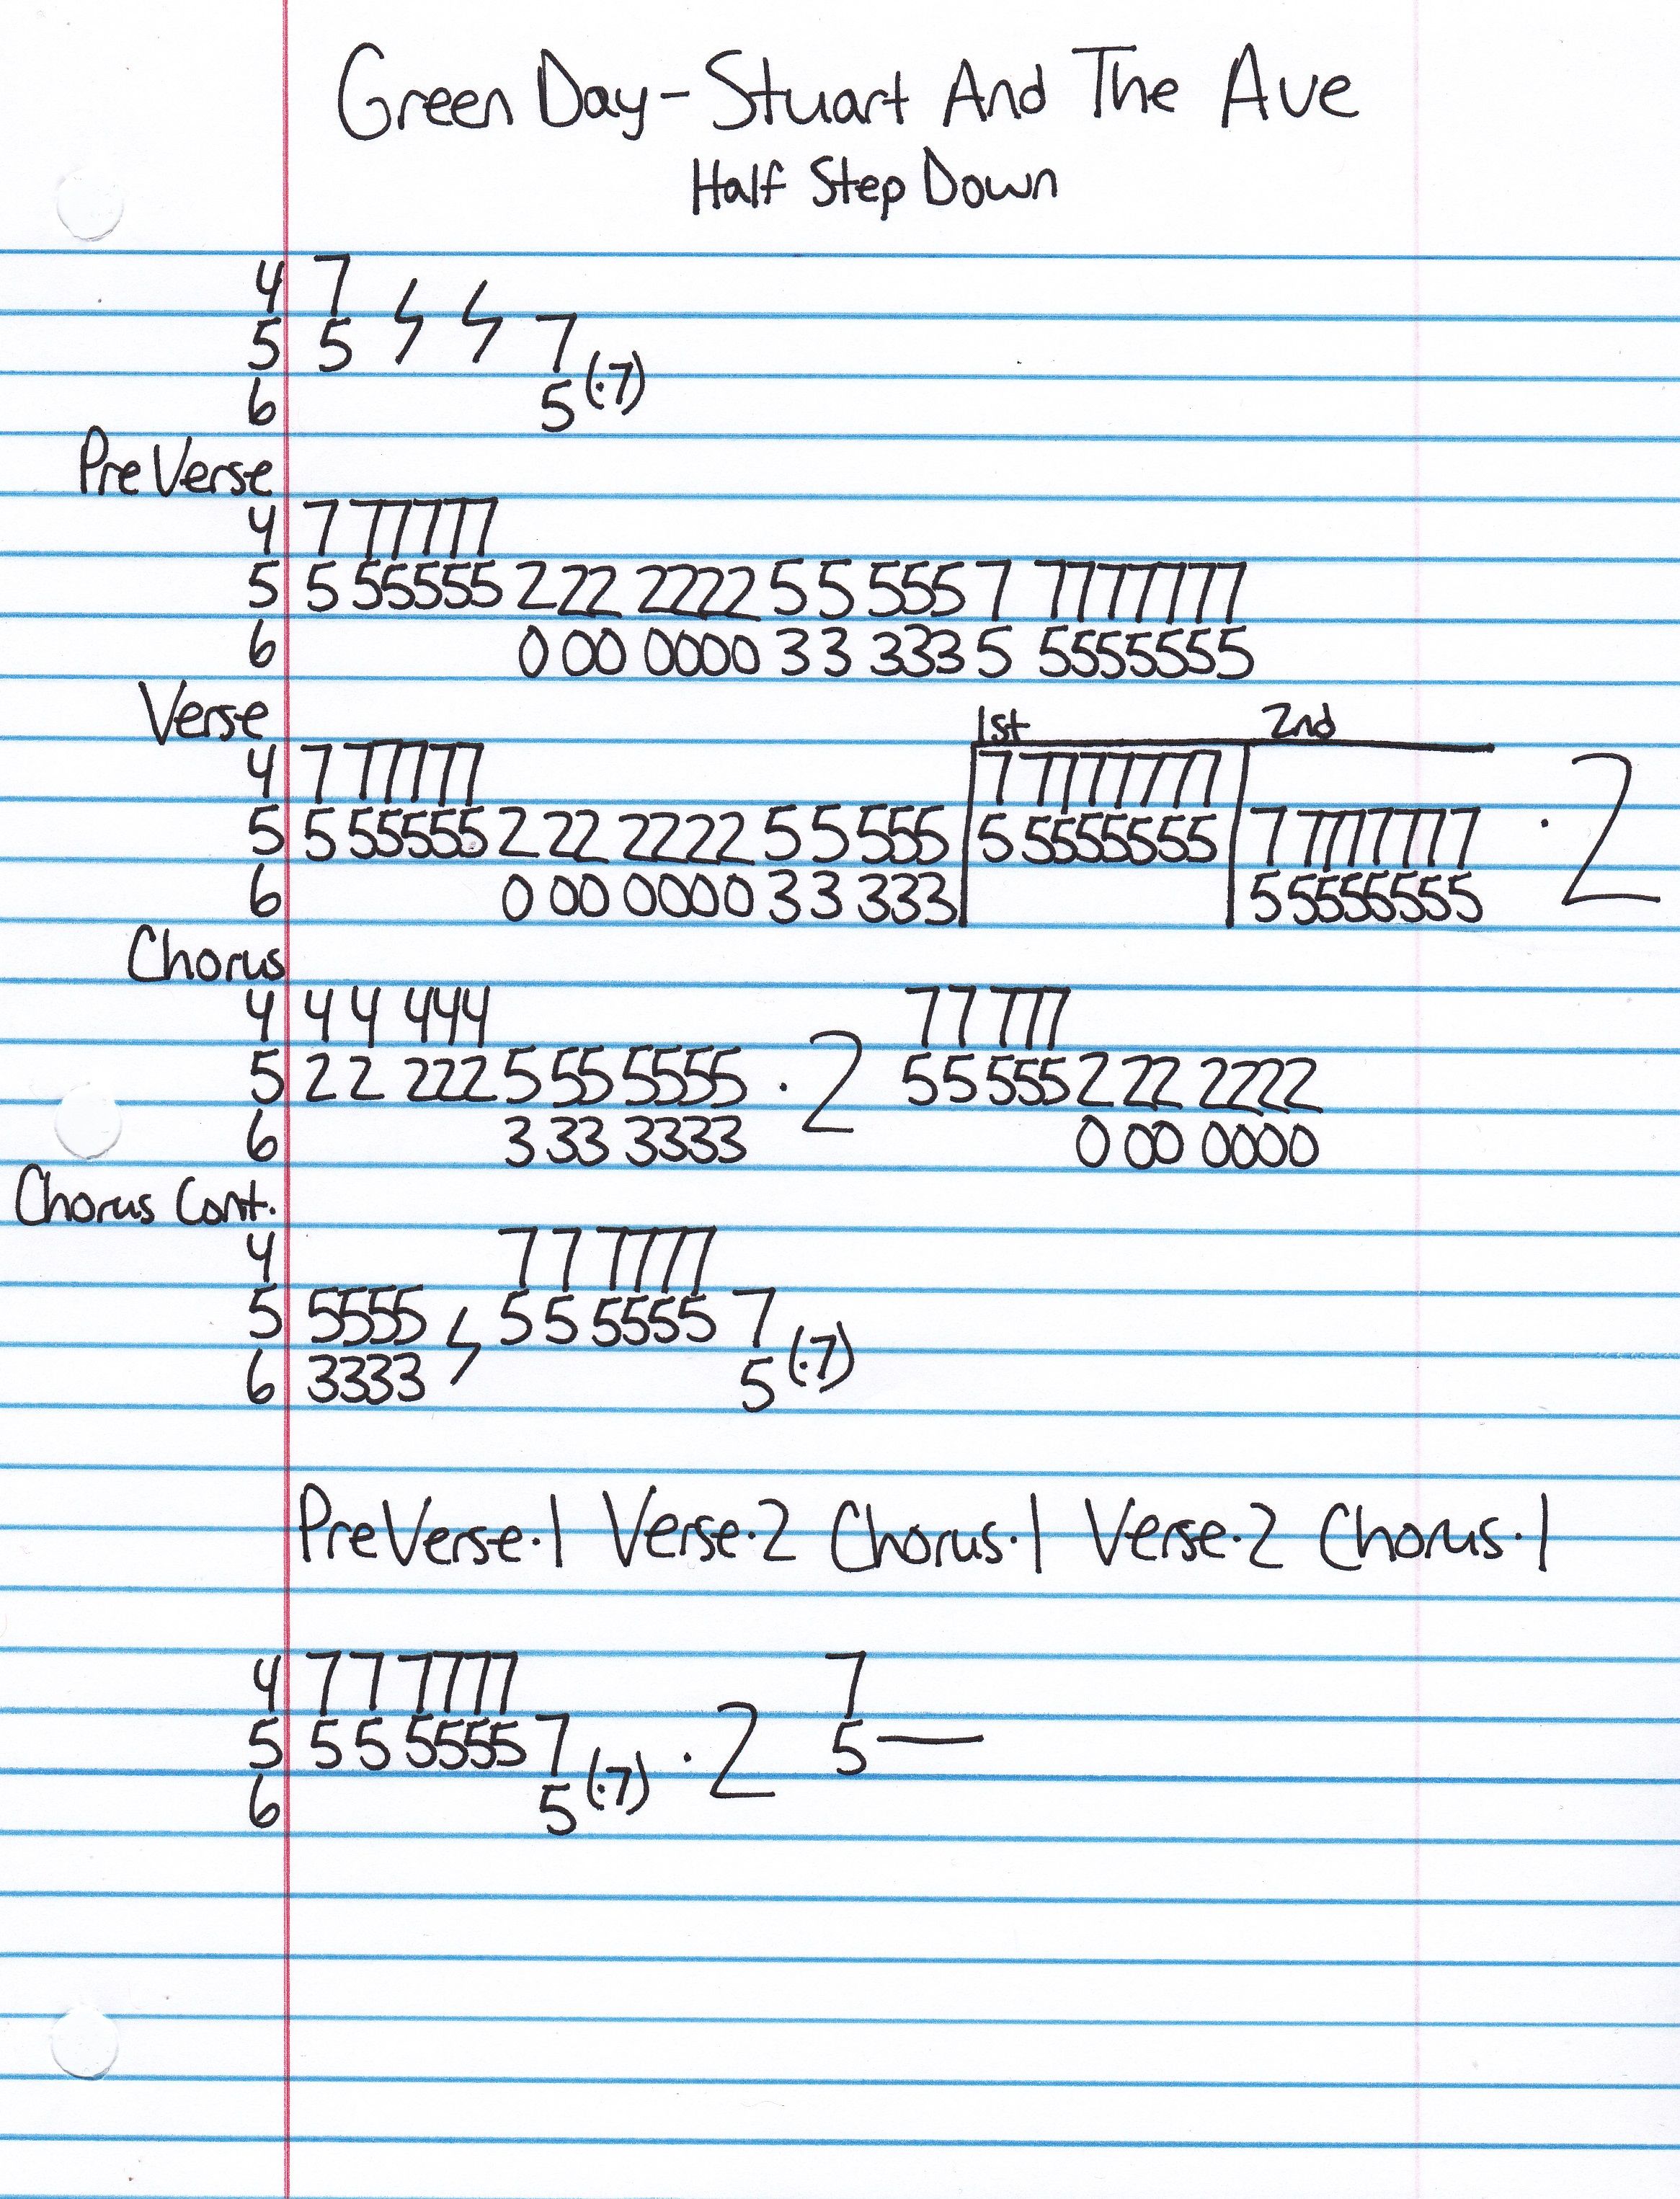 Green Day - Stuart And The Ave
Half Step Down
4 7
5 5 7
6 5 (·7)
PreVerse
4 7 77777
5 5 55555 2 22 2222 5 5 555 7 7777777
6 0 00 0000 3 3 333 5 5555555
Verse 1st 2nd
4 7 77777 7 7777777
5 5 55555 2 22 2222 5 5 555 5 5555555 7 7777777 · 2
6 0 00 0000 3 3 333 5 5555555
Chorus
4 4 4 444 77 777
5 2 2 222 5 55 5555 · 2 55 555 2 22 2222
6 3 33 3333 0 00 0000
Chorus Cont.
4 7 7 7777
5 5555 5 5 5555 7
6 3333 5 (·7)
PreVerse·1 Verse·2 Chorus·1 Verse·2 Chorus·1
4 7 7 7777 7
5 5 5 5555 7 · 2 5—
6 5 (·7)